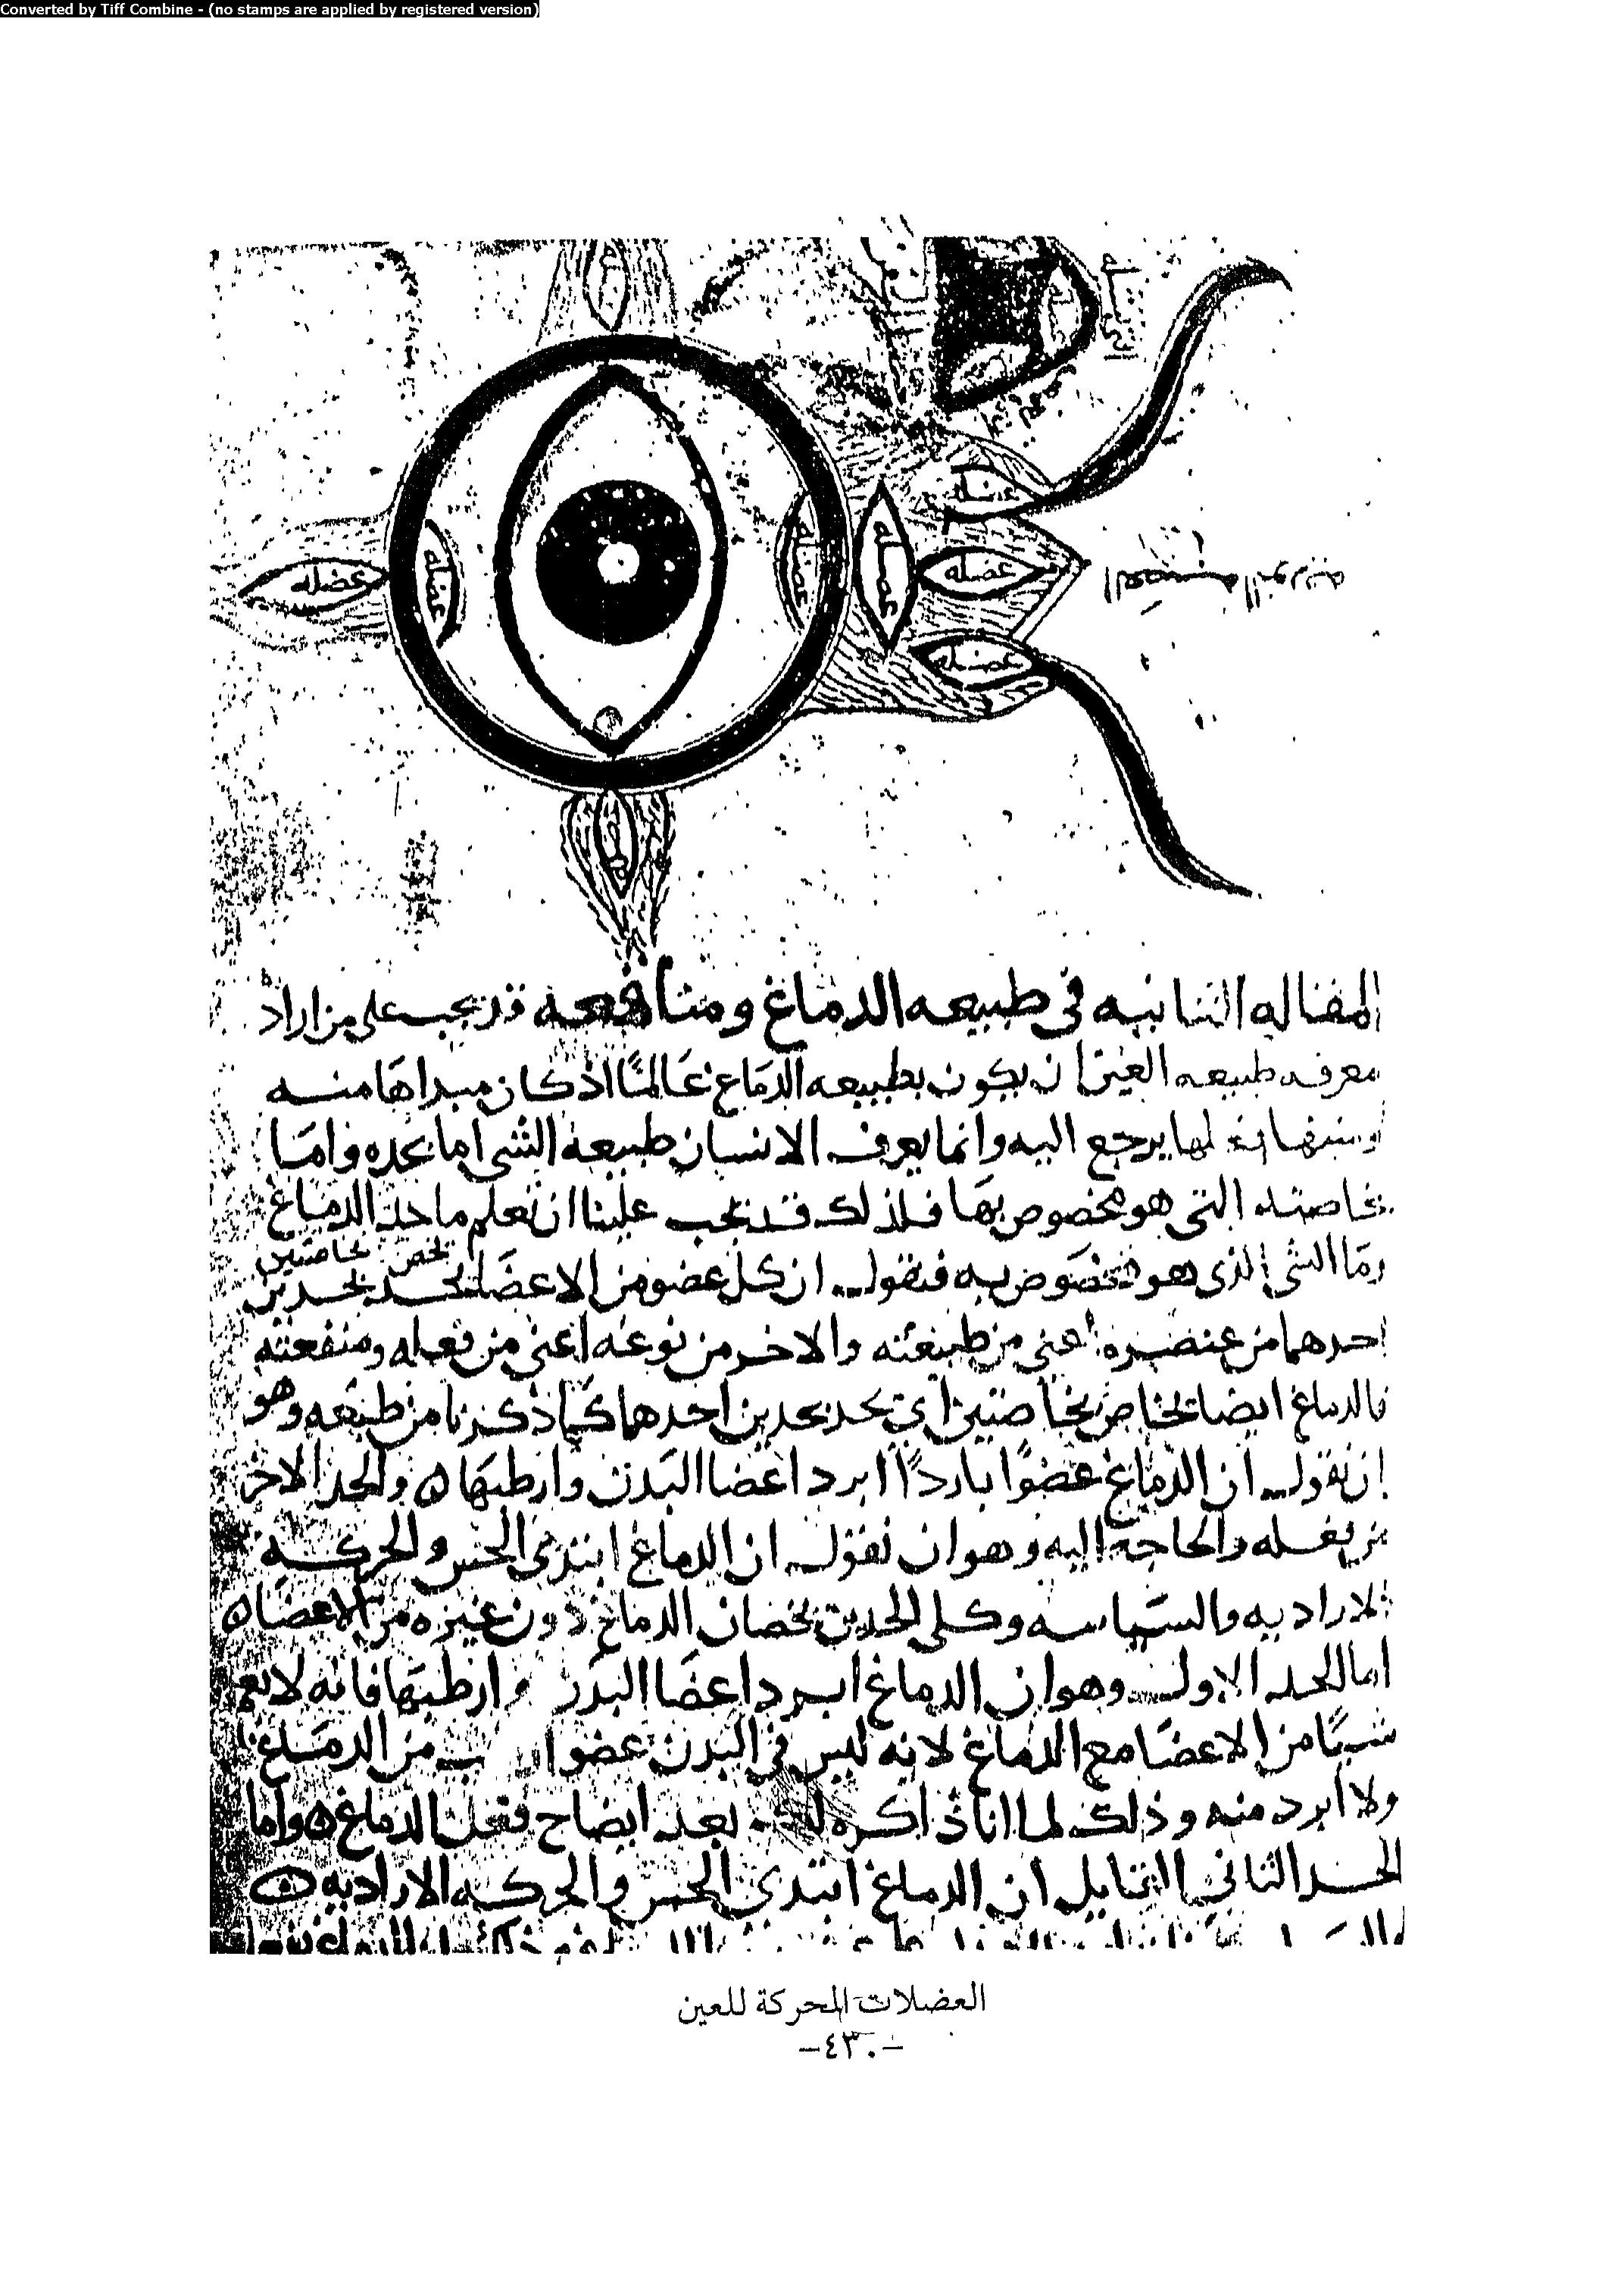 Converted by Tiff Combine - (no stamps are applied by registered version)
عضله
عضله
عضله
عضله
عضله
عضله
عضله
المقاله الثانيه في طبيعه الدماغ ومنافعه قد يجب على من اراد
معرفه طبيعه العين ان يكون بطبيعه الدماغ عالمًا اذ كان مبداها منه
لها يرجع اليه وانما يعرف الانسان طبيعه الشي اما بحده واما
بخاصته التي هو مخصوص بها فلذلك قد يجب علينا ان نعلم ما حد الدماغ
وما الشي الذي هو مخصوص به فنقول ان كل عضو من الاعضا يحد بحدين
يخص بخاصتين
احدهما من عنصره اعني من طبيعته والاخر من نوعه اعني من فعله ومنفعته
فالدماغ ايضا بخاصتين اي يحد بحدين احدهما كما ذكرنا من طبيعه وهو
ان نقول ان الدماغ عضوًا باردًا ابرد اعضا البدن وارطبها ٥ والحد الاخر
من فعله والحاجه اليه وهو ان نقول ان الدماغ ابتدى الحس والحركه
الاراديه والسياسه وكلى الحدين يخصان الدماغ دون غيره من الاعضا ٥
اما الحد الاول وهو ان الدماغ ابرد اعضا البدن وارطبها فانه لا يعم
شيًا من الاعضا مع الدماغ لانه ليس في البدن عضو من الدماغ
ولا ابرد منه وذلك لما انا ذاكره لك بعد ايضاح فعل الدماغ ٥ واما
الحد الثاني القايل ان الدماغ ابتدى الحس والحركه الاراديه ٥
العضلات المحركة للعين
-٤٣٠-